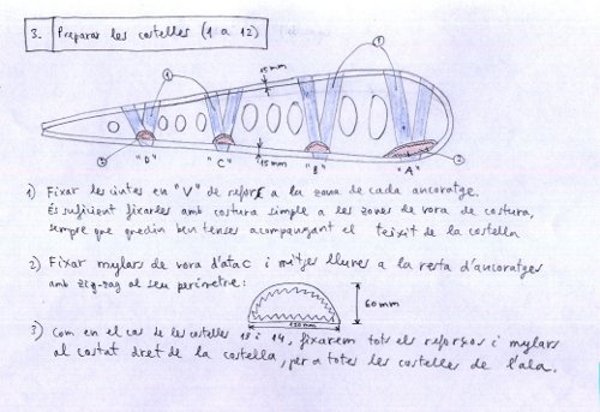 3. Preparar les costelles (1 a 12)
1 1
15 mm
2 15 mm 2
"D" "C" "B" "A"
1) Fixar les cintes en "V" de reforç a la zona de cada ancoratge.
És suficient fixarles amb costura simple a les zones de vora de costura,
sempre que quedin ben tenses acompanyant el teixit de la costella
2) Fixar mylars de vora d'atac i mitjes llunes a la resta d'ancoratges
amb zig-zag al seu perímetre:
60 mm
120 mm
3) Com en el cas de les costelles 13 i 14, fixarem tots els reforços i mylars
al costat dret de la costella, per a totes les costelles de l'ala.